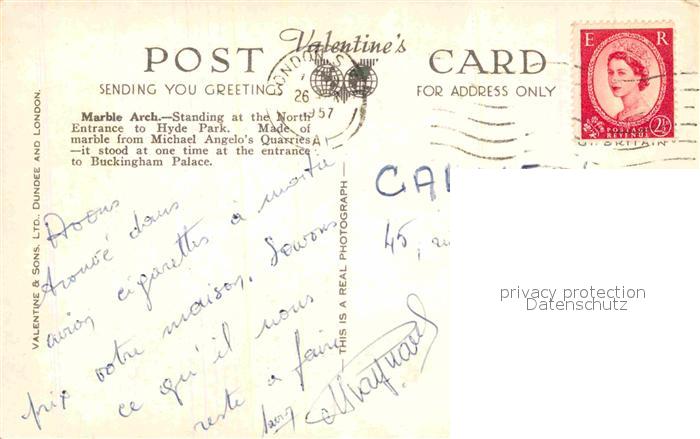 Valentine's
POST CARD
SENDING YOU GREETINGS
FOR ADDRESS ONLY
LONDON S
26
1957
E R
POSTAGE
REVENUE
2½
Marble Arch.—Standing at the North
Entrance to Hyde Park. Made of
marble from Michael Angelo's Quarries
—it stood at one time at the entrance
to Buckingham Palace.
VALENTINE & SONS, LTD., DUNDEE AND LONDON.
THIS IS A REAL PHOTOGRAPH
Avons
trouvé dans
avion cigarettes à moitié
prix votre maison. Savons
ce qu'il nous
reste à faire
45,
privacy protection
Datenschutz